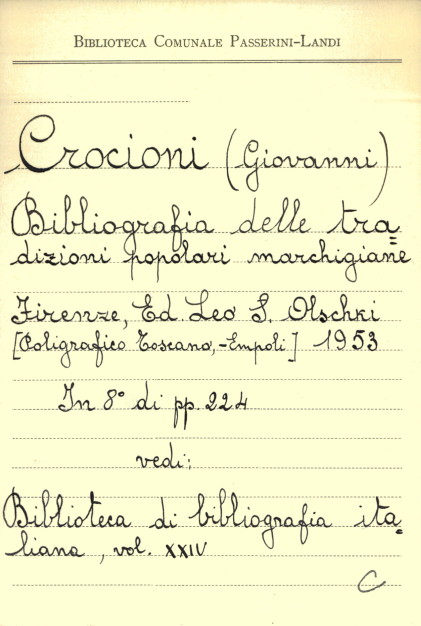 BIBLIOTECA COMUNALE PASSERINI-LANDI
Crocioni (Giovanni)
Bibliografia delle tra=
dizioni popolari marchigiane
Firenze, Ed. Leo S. Olschki
[Poligrafico Toscano,-Empoli] 1953
In 8° di pp. 224
vedi:
Biblioteca di bibliografia ita=
liana, vol. XXIV
C